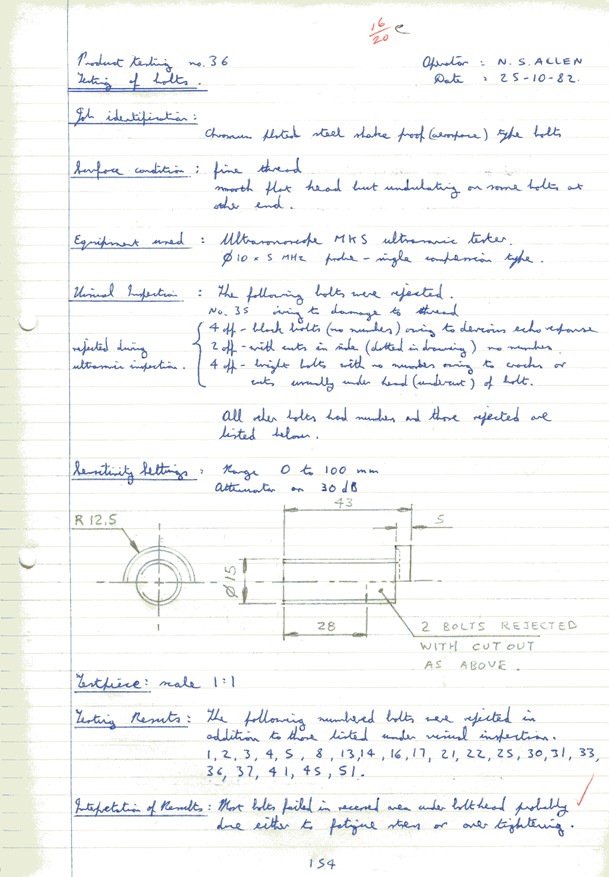 16/20 e
Product testing no. 36
Testing of bolts.
Operator : N. S. ALLEN
Date : 25-10-82.
Job identification :
Chromium plated steel shake proof (aerospace) type bolts
Surface condition : fine thread
smooth flat head but undulating on some bolts at
other end.
Equipment used : Ultrasonoscope MKS ultrasonic tester.
Ø10 × 5 MHz probe - single compression type.
Visual Inspection : The following bolts were rejected.
No. 35 owing to damage to thread
rejected during
ultrasonic inspection.
4 off - black bolts (no number) owing to devious echo response
2 off - with cuts in side (dotted in drawing) no number.
4 off - bright bolts with no number owing to cracks or
cuts usually under head (undercut) of bolt.
All other bolts had numbers and those rejected are
listed below.
Sensitivity Settings : Range 0 to 100 mm
Attenuator on 30 dB
R 12.5
43
5
Ø 15
28
2 BOLTS REJECTED
WITH CUT OUT
AS ABOVE.
Testpiece : scale 1:1
Testing Results : The following numbered bolts were rejected in
addition to those listed under visual inspection.
1, 2, 3, 4, 5, 8, 13, 14, 16, 17, 21, 22, 25, 30, 31, 33,
36, 37, 41, 45, 51.
Intepretation of Results : Most bolts failed in recessed area under bolt head probably
due either to fatigue stress or over tightening.
154